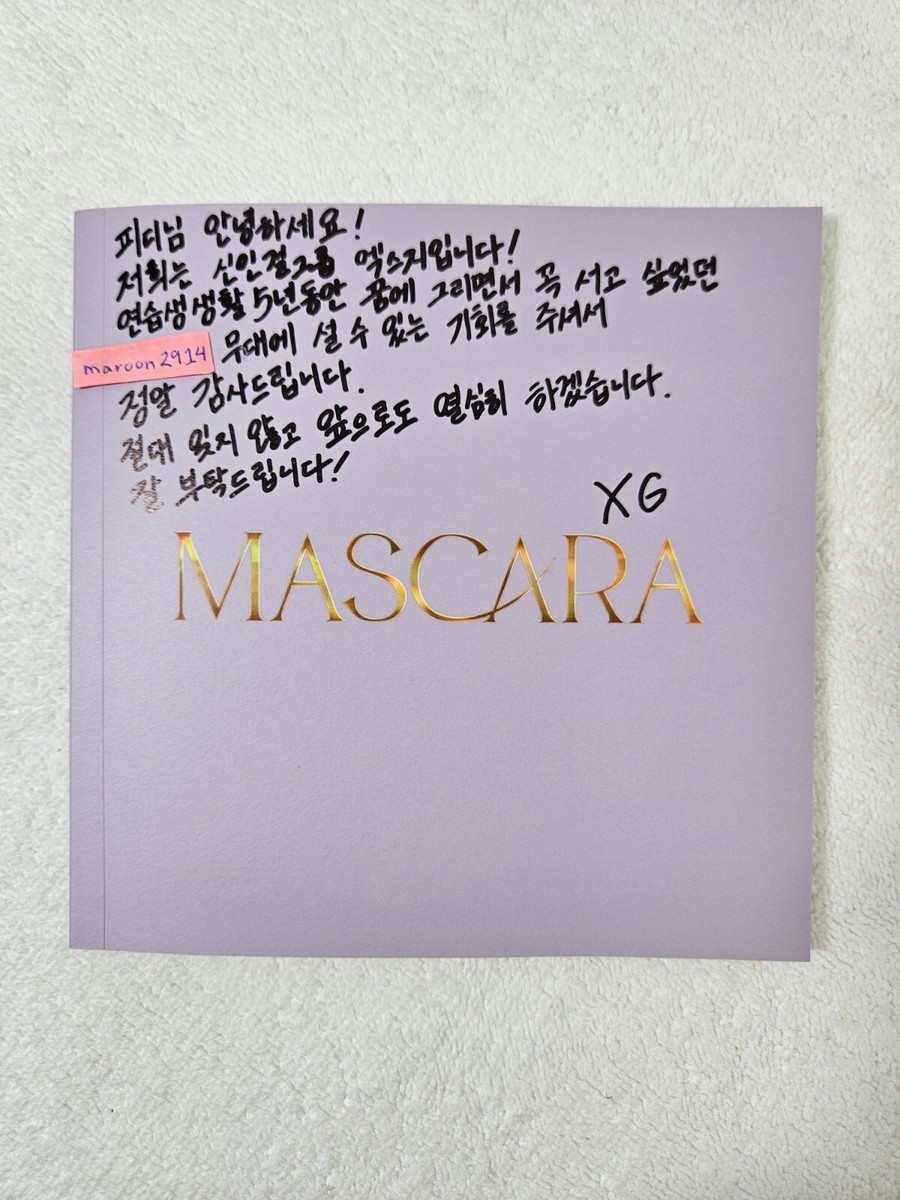 피디님 안녕하세요!
저희는 신인걸그룹 엑스지입니다!
연습생생활 5년동안 꿈에 그리면서 꼭 서고 싶었던
무대에 설 수 있는 기회를 주셔서
maroon2914
정말 감사드립니다.
절대 잊지 않고 앞으로도 열심히 하겠습니다.
잘 부탁드립니다!
XG
MASCARA